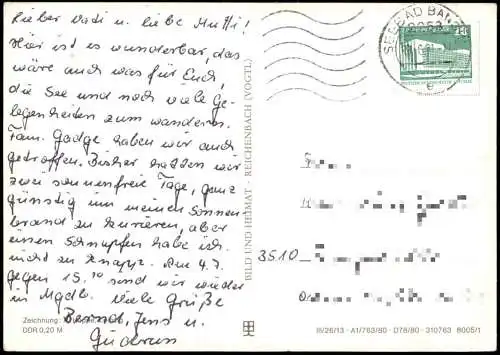 Lieber Vadi u. liebe Mutti!
Hier ist es wunderbar, das
wäre auch was für Euch,
die See und noch viele Ge-
legenheiten zum wandern.
Fam. Gadge haben wir auch
getroffen. Bisher hatten wir
zwei sonnenfreie Tage, ganz
günstig um meinen Sonnen
brand zu kurieren, aber
einen Schnupfen habe ich
nicht zu knapp. Am 4.7.
gegen 15.10 sind wir wieder
in Mgdb. Viele Grüße
Bernd, Jens u.
Gudrun
Zeichnung:
DDR 0,20 M
BILD UND HEIMAT · REICHENBACH (VOGTL)
SEEBAD BAN
e
3510
III/26/13 · A1/763/80 · D78/80 · 310763 8005/1